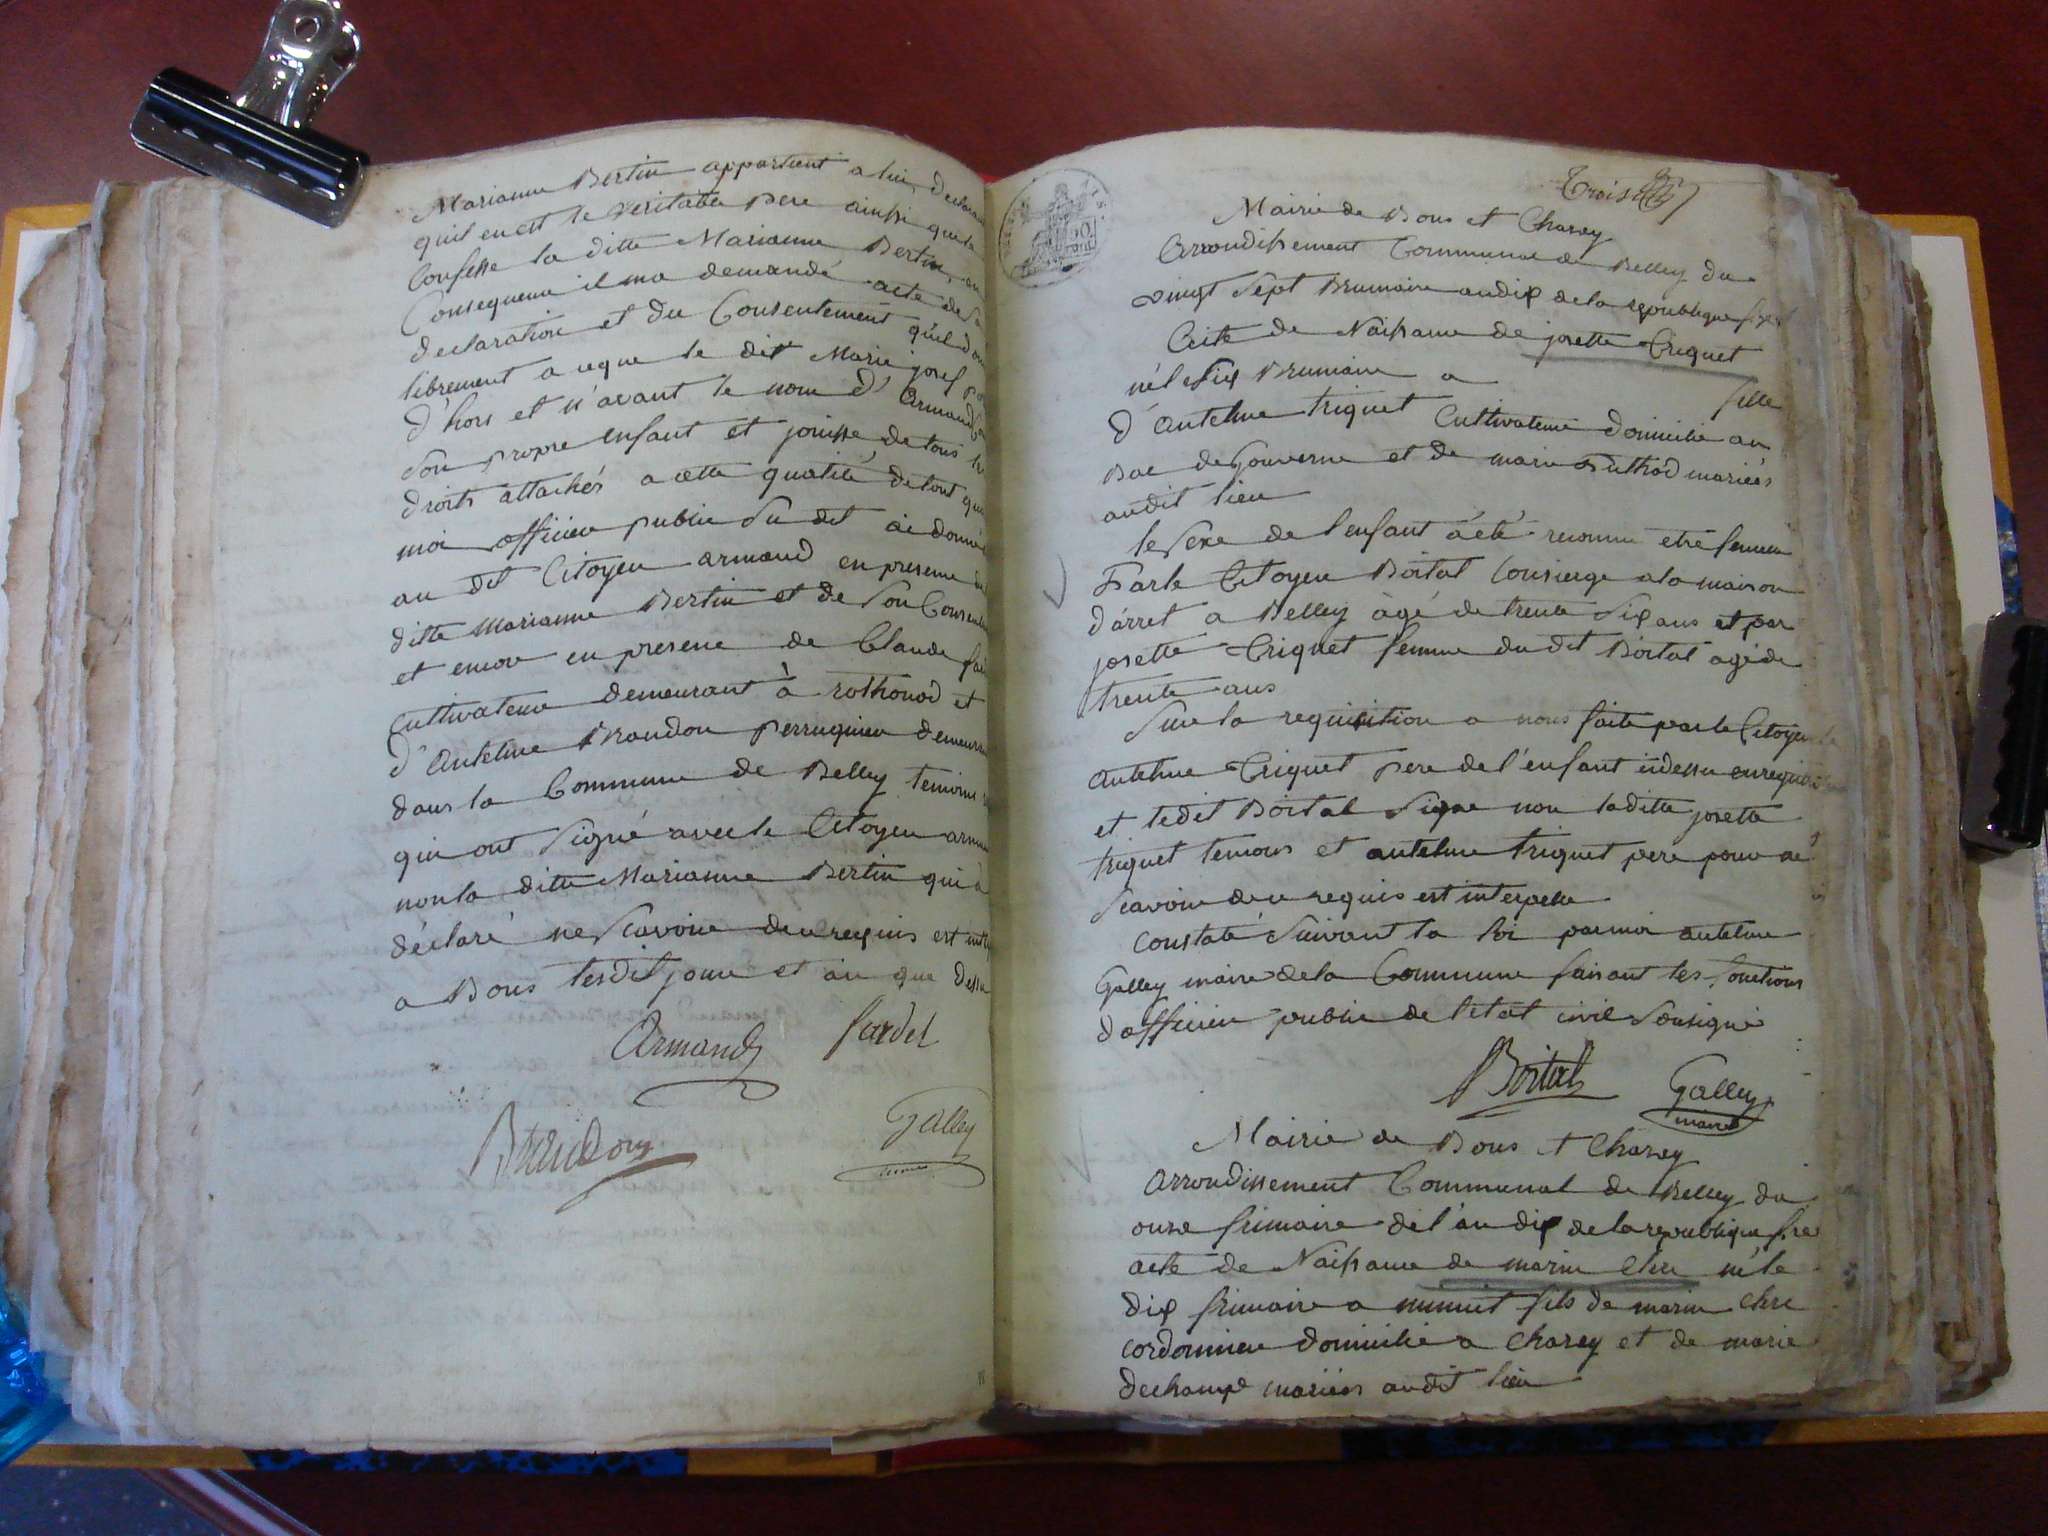 Marianne Bertin appartient a lui, declarant
quil en est le veritable pere ainssi que la
Confesse la ditte Marianne Bertin, en
Consequence il ma demandé acte de sa
declaration et du Consentement quil donne
librement a ceque le dit Marie josef
d'hors et n'avant le nom d'Armand
Son propre enfant et jouisse de tous les
droits attachés a cette qualité de tout quoi
moi officier public Su dit ai donné
au dit Citoyen armand en presence de
ditte Marianne Bertin et de Son Consente
et encore en presence de Claude
Cultivateur demeurant à rothonod et
d'Antelme Brondon perruquier demeurant
dans la Commune de Belley temoins
qui ont Signé avec le Citoyen armand
non la ditte Marianne Bertin qui a
déclaré ne Scavoir de ce requis est inter
a Bons lesdit jour et an que dessu
Armand fardel
Brondon Galley
maire
Trois
Mairie de Bons et Chazey
Arrondissement Communal de Belley du
vingt Sept Brumaire an dix de la republique
Acte de Naissance de josette Triquet
né le Six Brumaire a
fille
d'Antelme triquet Cultivateur domicilié au
Bac de et de marie mariés
audit lieu
le Sexe de l'enfant a été reconnu etre femen
Par le Citoyen Boital Consierge a la maison
d'arret a Belley àgé de trente Six ans et par
josette Triquet femme du dit Boital agé de
trente ans
Sur la requisition a nous faite par le Citoyen
Antelme Triquet pere de l'enfant cidessu
et ledit Boital Signe non laditte josette
triquet temoins et antelme triquet pere pour ne
Scavoir de ce requis est interpelle
Constaté Suivant la loi par moi antelme
Galley maire de la Commune faisant les fonctions
dofficier public de letat civil Sousigné
Boital Galley
maire
Mairie de Bons et Chazey
Arrondissement Communal de Belley du
onze frimaire de l'an dix de la republique fse
acte de Naissance de marin Chee né le
dix frimaire a minuit fils de marin Chee
cordonnier domicilié a Chazey et de marie
dechamp mariés audit lieu